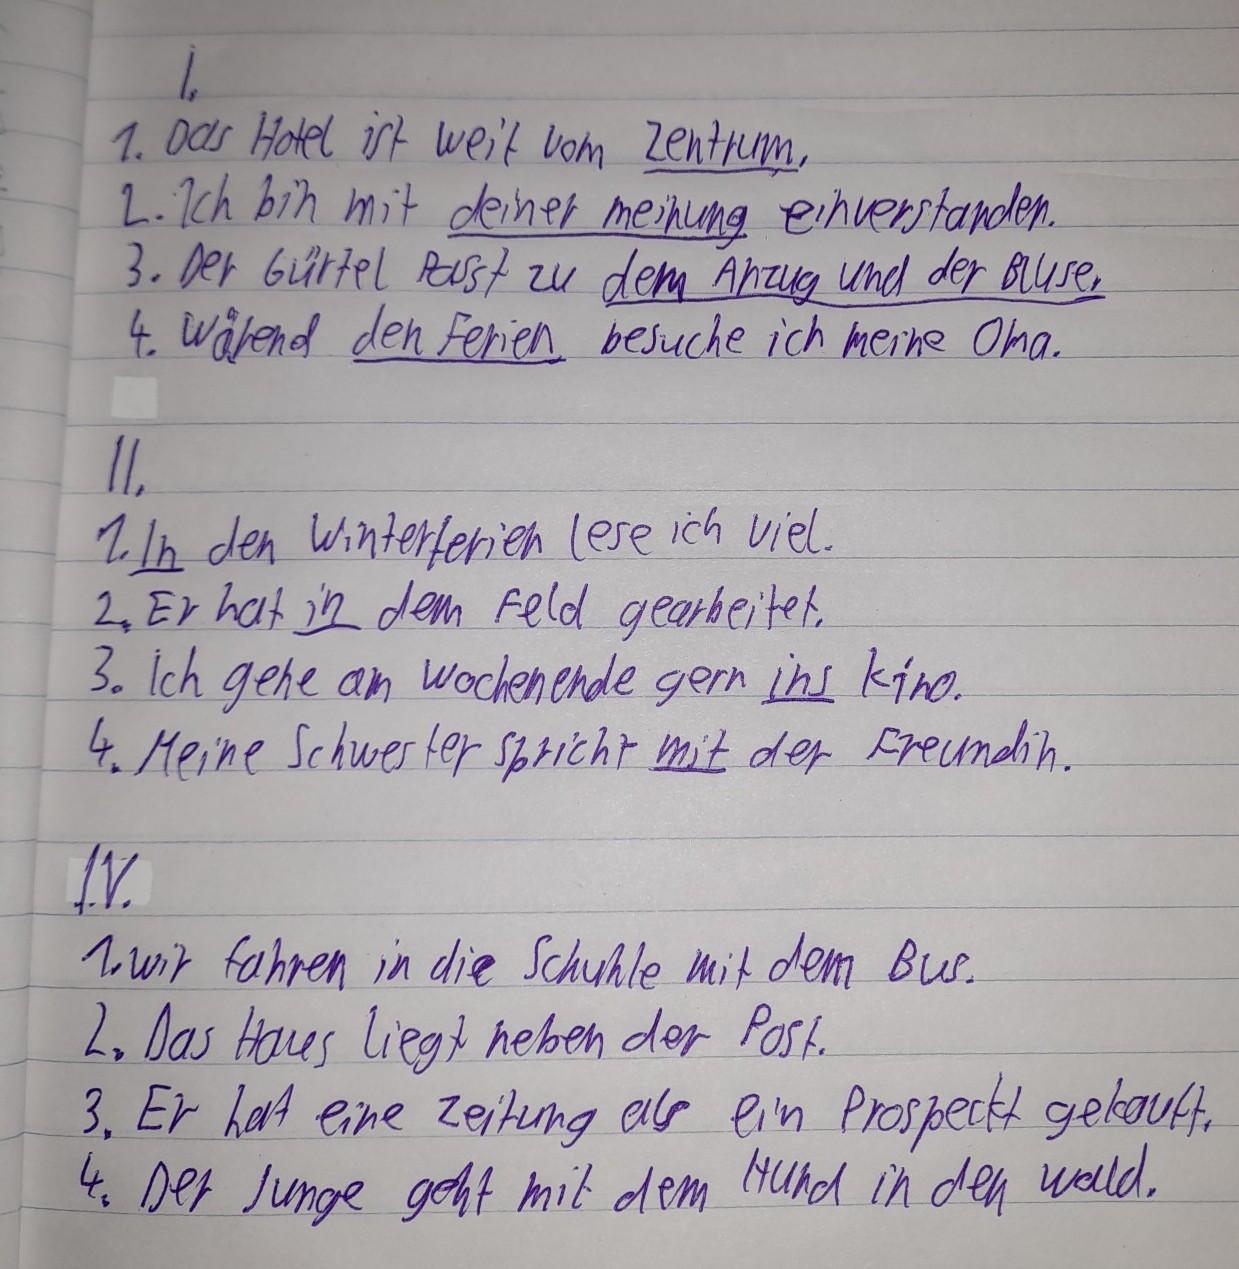 I.
1. Das Hotel ist weit vom Zentrum.
2. Ich bin mit deiner meinung einverstanden.
3. Der Gürtel Passt zu dem Anzug und der Bluse.
4. Wärend den Ferien besuche ich meine Oma.
II.
1. In den Winterferien lese ich viel.
2. Er hat in dem Feld gearbeitet.
3. Ich gehe am Wochenende gern ins Kino.
4. Meine Schwester spricht mit der Freundin.
IV.
1. wir fahren in die Schuhle mit dem Bus.
2. Das Haus liegt neben der Post.
3. Er hat eine Zeitung als ein Prospeckt gekauft.
4. Der Junge geht mit dem Hund in den Wald.